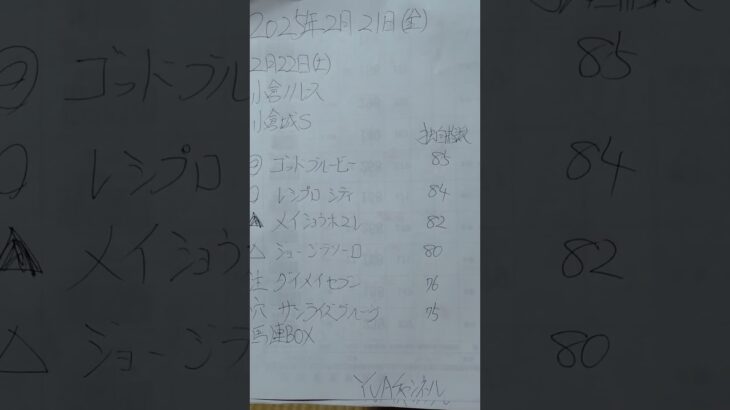 2025年2月21日(金)
2月22日(土)
小倉11レース
小倉城S
独自指数
◎ ゴッドブルービー 85
○ レシプロシティ 84
▲ メイショウホマレ 82
△ ジョージラソーロ 80
注 ダイメイセブン 76
穴 サンライズブルーツ 75
馬連BOX
YUAチャンネル